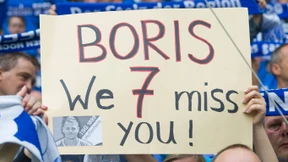 BORIS
We 7 miss
you!